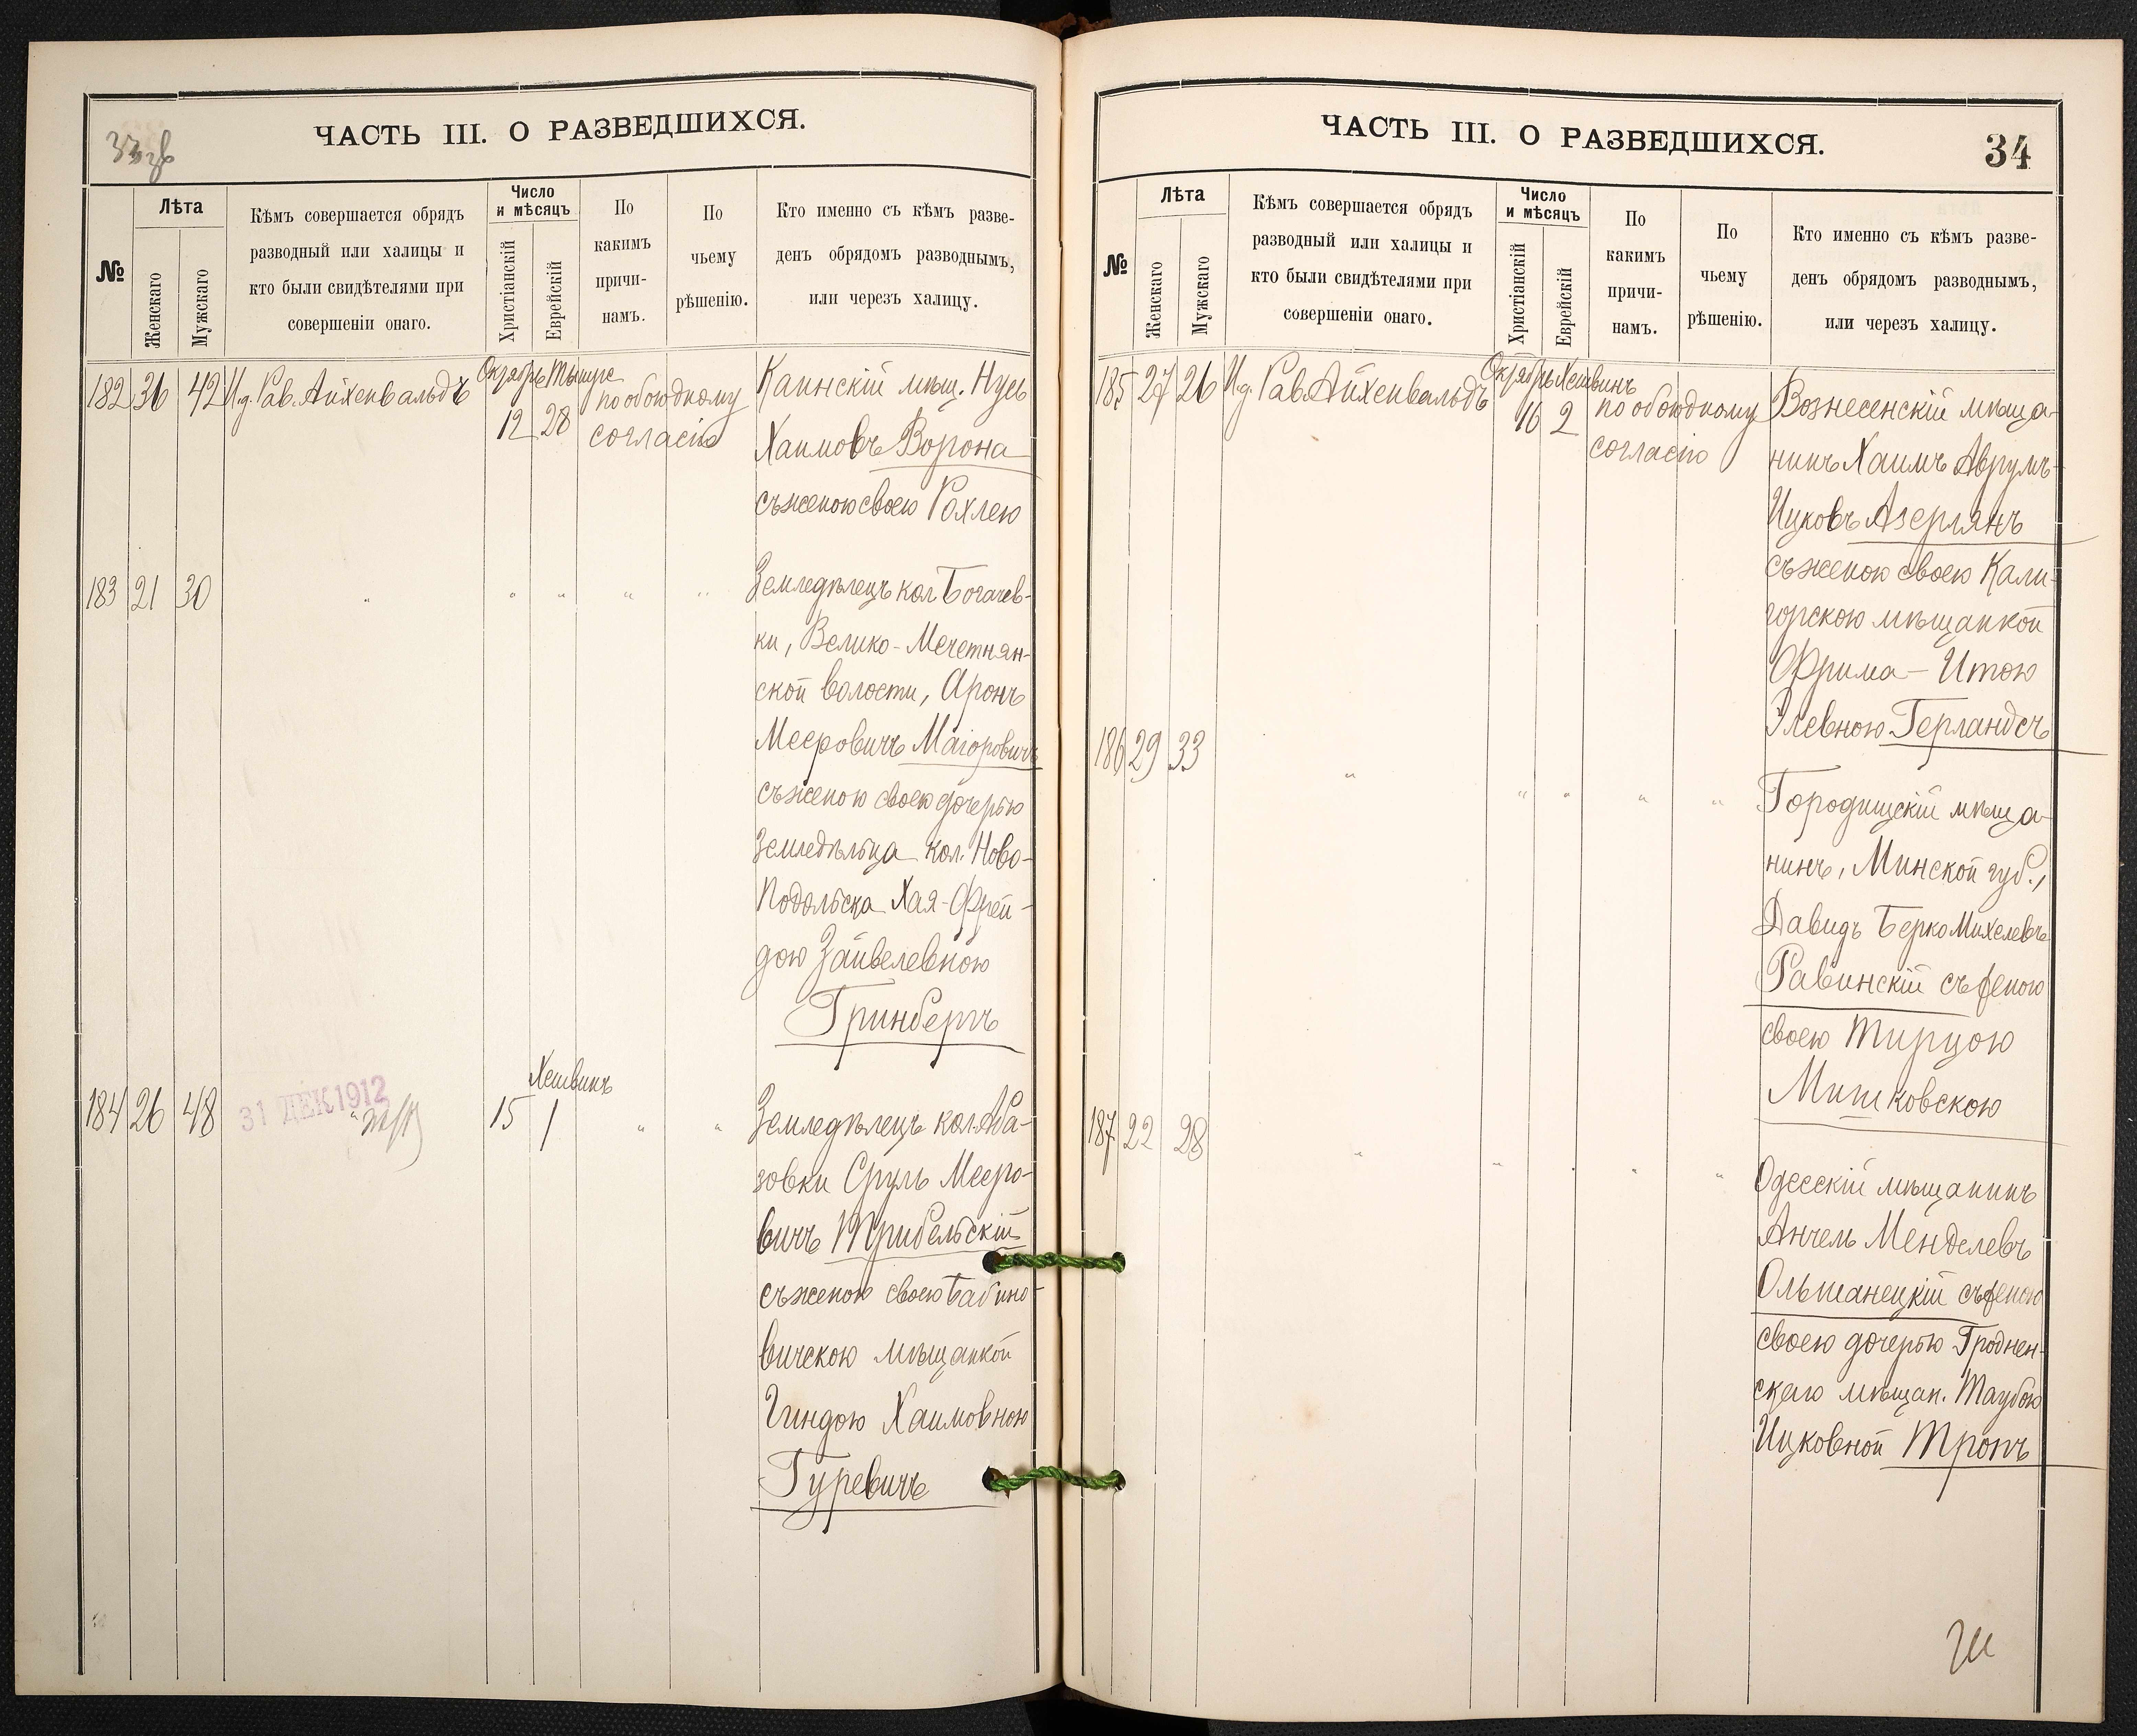 33 об
ЧАСТЬ III. О РАЗВЕДШИХСЯ.
№
Лѣта
Женскаго
Мужскаго
Кѣмъ совершается обрядъ
разводный или халицы и
кто были свидѣтелями при
совершеніи онаго.
Число
и мѣсяцъ
Христіанскій
Еврейскій
По
какимъ
причи-
намъ.
По
чьему
рѣшенію.
Кто именно съ кѣмъ разве-
денъ обрядомъ разводнымъ,
или черезъ халицу.
182 36 42 И.д. Рав. Айхенвальдъ Октябрь Тишре 12 28 по обоюдному
согласію
Каинскій мѣщ. Нусь
Хаимовъ Ворона
съ женою своею Рахлею
183 21 30 " " " " "
Земледѣлецъ кол. Богачев-
ки, Велико-Мечетнян-
ской волости, Аронъ
Мееровичъ Маіоровичъ
съ женою своею дочерью
Земледѣльца кол. Ново-
Подольска Хая-Фрей-
дою Зайвелевною
Гринбергъ
Хешвинъ
184 26 48 " 15 1 " "
31 ДЕК 1912
Земледѣлецъ кол. Аба-
зовки Сруль Мееро-
вичъ Трибельскій
съ женою своею Бабино-
вичскою мѣщанкой
Гиндою Хаимовною
Гуревичъ
ЧАСТЬ III. О РАЗВЕДШИХСЯ.
34
№
Лѣта
Женскаго
Мужскаго
Кѣмъ совершается обрядъ
разводный или халицы и
кто были свидѣтелями при
совершеніи онаго.
Число
и мѣсяцъ
Христіанскій
Еврейскій
По
какимъ
причи-
намъ.
По
чьему
рѣшенію.
Кто именно съ кѣмъ разве-
денъ обрядомъ разводнымъ,
или черезъ халицу.
185 27 26 И.д. Рав. Айхенвальдъ Октябрь Хешвинъ 16 2 по обоюдному
согласію
Вознесенскій мѣща-
нинъ Хаимъ Аврумъ-
Ицковъ Азерлянъ
съ женою своею Кали-
горскою мѣщанкой
Фрима-Итою
Элевною Герландсъ
186 29 33 " " " " "
Городищскій мѣща-
нинъ, Минской губ.,
Давидъ Берко Михелевъ
Равинскій съ женою
своею Тирцою
Мишковскою
187 22 28 " " " " "
Одесскій мѣщанинъ
Анчель Менделевъ
Ольшанецкій съ женою
своею дочерью Гроднен-
скаго мѣщан. Таубою
Ицковной Тропъ